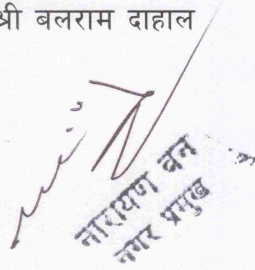 श्री बलराम दाहाल
नारायण वन
नगर प्रमुख